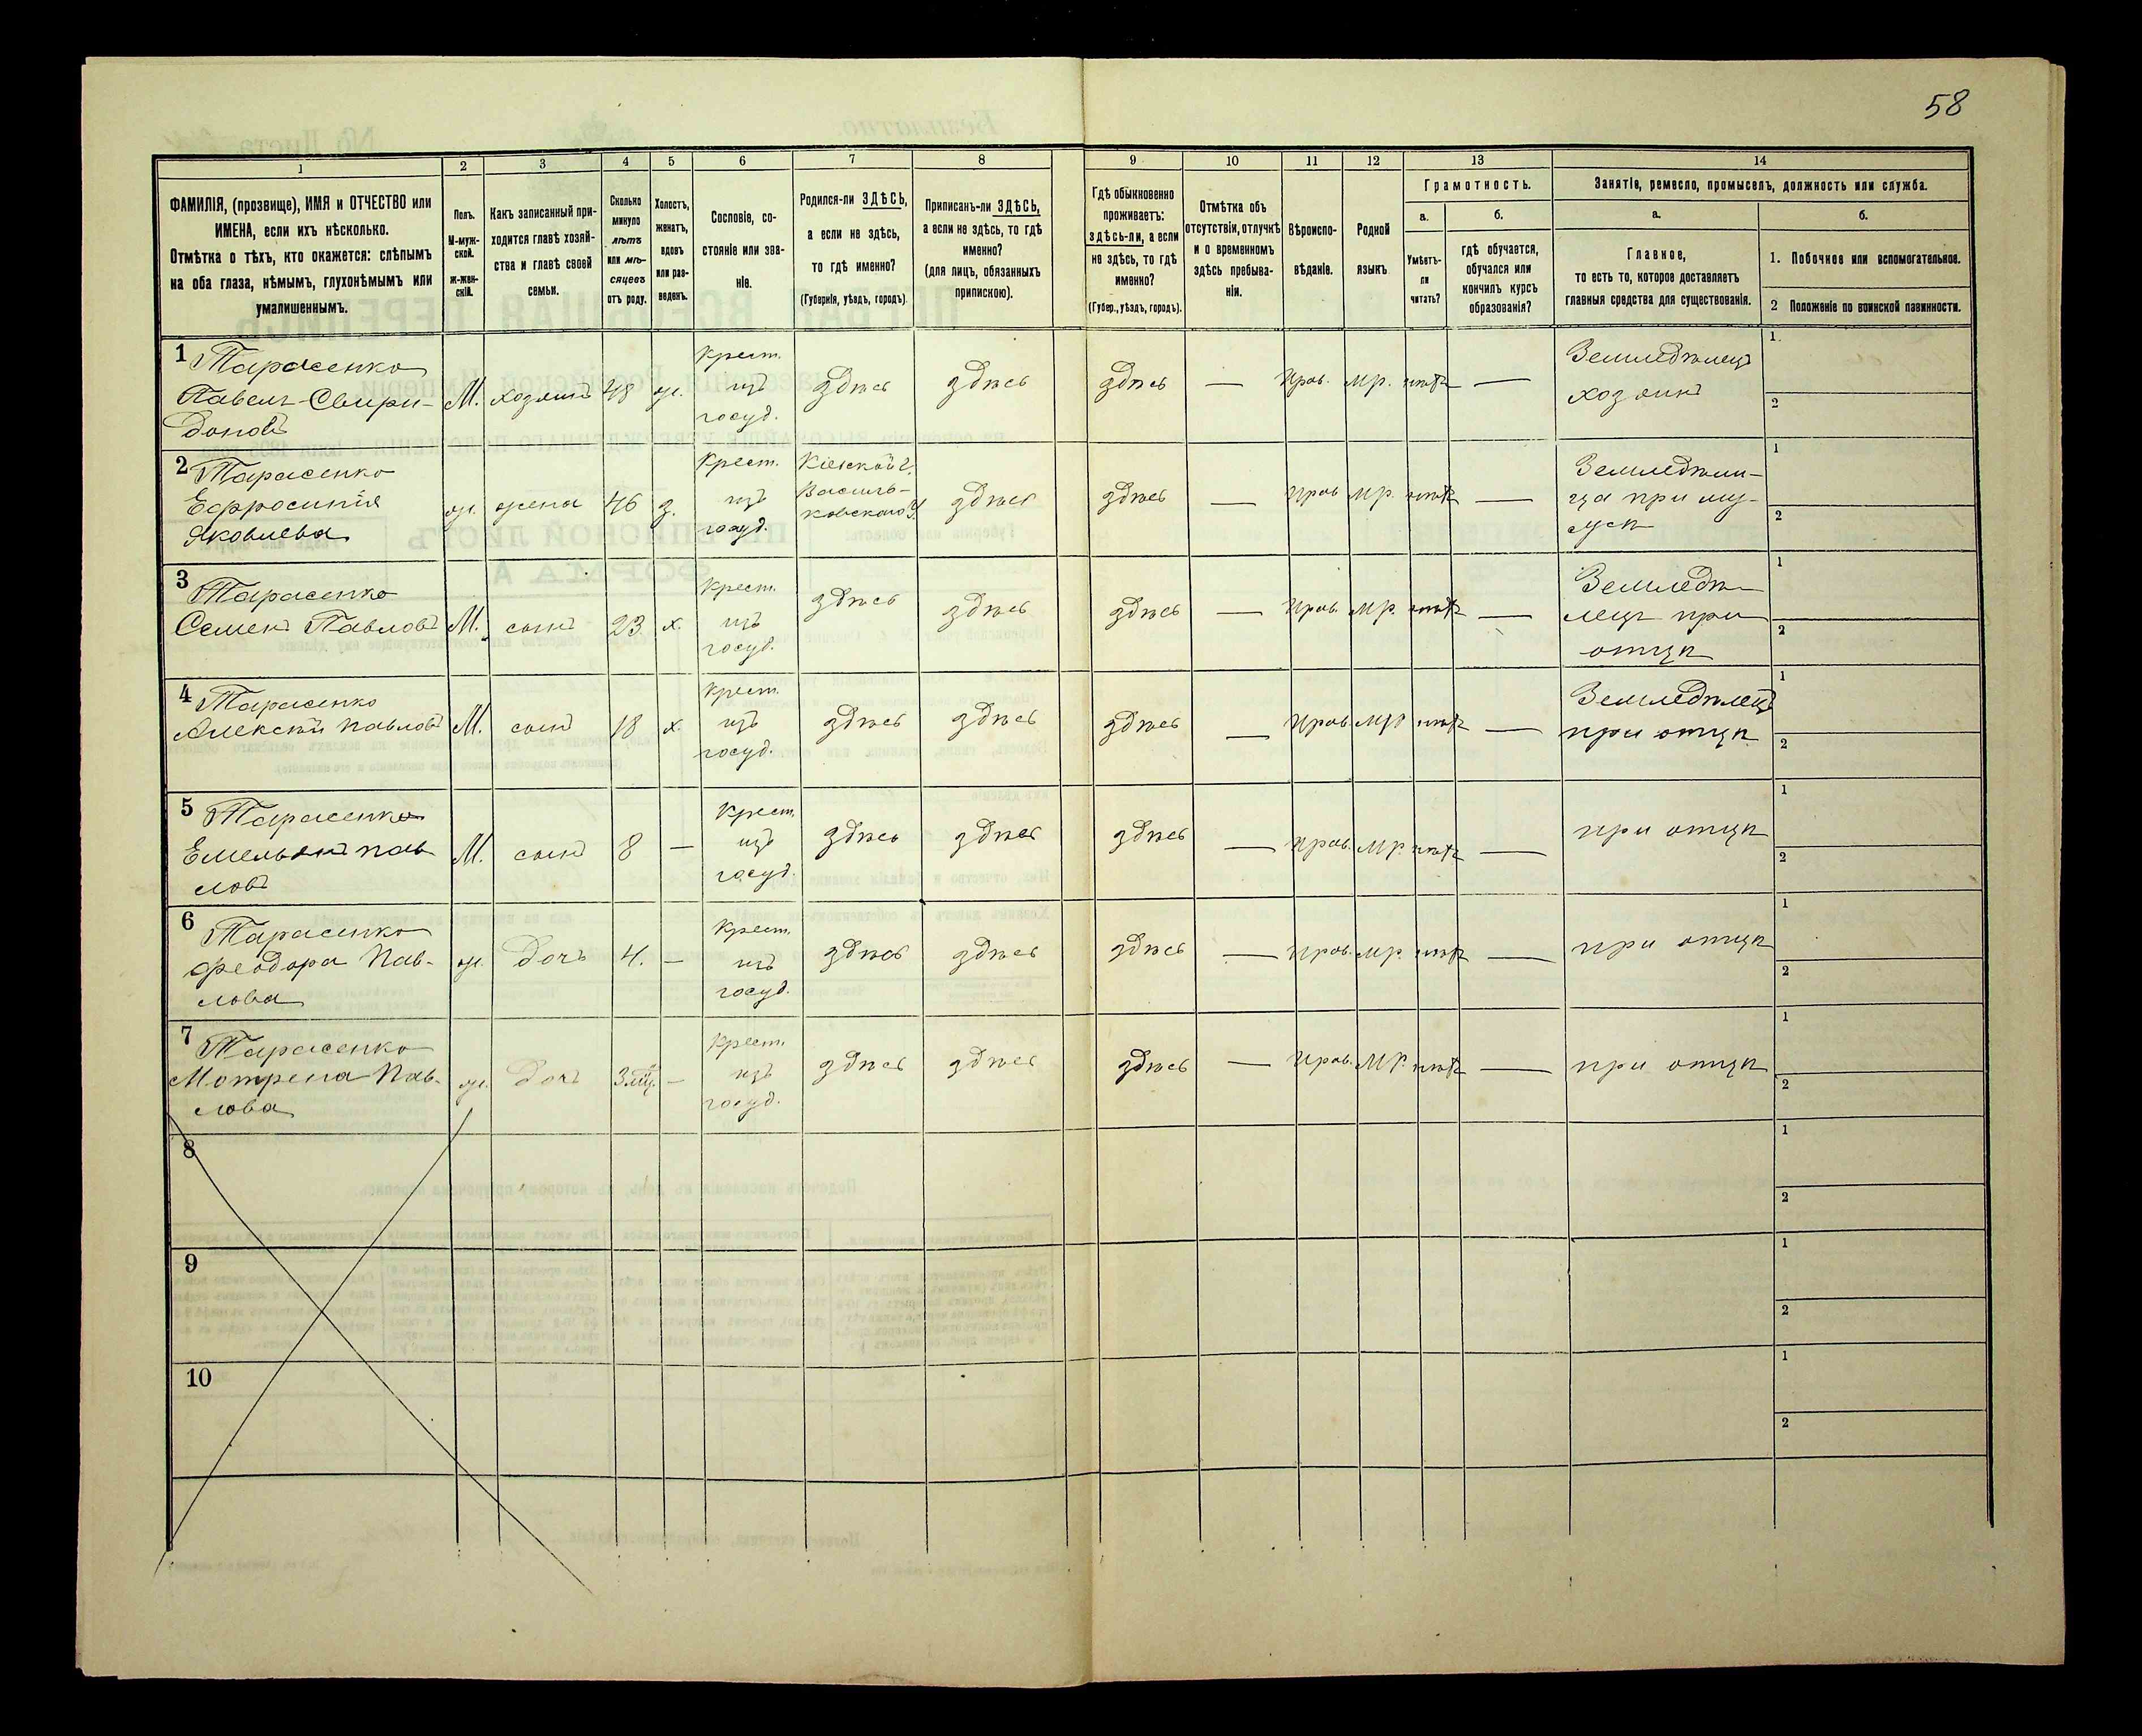 58
1
2
3
4
5
6
7
8
9
10
11
12
13
14
ФАМИЛІЯ, (прозвище), ИМЯ и ОТЧЕСТВО или
ИМЕНА, если ихъ нѣсколько.
Отмѣтка о тѣхъ, кто окажется: слѣпымъ
на оба глаза, нѣмымъ, глухонѣмымъ или
умалишеннымъ.
Полъ.
М-муж-
ской.
ж-жен-
скій.
Какъ записанный при-
ходится главѣ хозяй-
ства и главѣ своей
семьи.
Сколько
минуло
лѣтъ
или мѣ-
сяцевъ
отъ роду.
Холостъ,
женатъ,
вдовъ
или раз-
веденъ.
Сословіе, со-
стояніе или зва-
ніе.
Родился-ли ЗДѢСЬ,
а если не здѣсь,
то гдѣ именно?
(Губернія, уѣздъ, городъ).
Приписанъ-ли ЗДѢСЬ,
а если не здѣсь, то гдѣ
именно?
(для лицъ, обязанныхъ
припискою).
Гдѣ обыкновенно
проживаетъ:
здѣсь-ли, а если
не здѣсь, то гдѣ
именно?
(Губер., уѣздъ, городъ).
Отмѣтка объ
отсутствіи, отлучкѣ
и о временномъ
здѣсь пребыва-
ніи.
Вѣроиспо-
вѣданіе.
Родной
языкъ.
Грамотность.
а.
Умѣетъ-
ли
читать?
б.
гдѣ обучается,
обучался или
кончилъ курсъ
образованія?
Занятіе, ремесло, промыселъ, должность или служба.
а.
Главное,
то есть то, которое доставляетъ
главныя средства для существованія.
б.
1. Побочное или вспомогательное.
2 Положеніе по воинской павинности.
1 Тарасенко
Павелъ Свири-
доновъ
М.
хозяинъ
48
ж.
крест.
изъ
госуд.
здѣсь
здѣсь
здѣсь
—
Прав.
мр.
нѣтъ
—
Земледѣлецъ
хозяинъ
1.
2
2 Тарасенко
Ефросинія
Яковлева
ж.
жена
46
з.
Крест.
изъ
госуд.
Кіевской г.
Василь-
ковскаго у.
здѣсь
здѣсь
—
Прав
мр.
нѣтъ
—
Земледѣли-
ца при му-
жѣ
1
2
3 Тарасенко
Семенъ Павловъ
М.
сынъ
23
х.
Крест.
изъ
госуд.
здѣсь
здѣсь
здѣсь
—
Прав.
мр.
нѣтъ
—
Земледѣ-
лецъ при
отцѣ
1
2
4 Тарасенко
Алексѣй Павловъ
М.
сынъ
18
х.
Крест.
изъ
госуд.
здѣсь
здѣсь
здѣсь
—
Прав.
мр
нѣтъ
—
Земледѣлецъ
при отцѣ
1
2
5 Тарасенко
Емельянъ Пав
ловъ
М.
сынъ
8
—
Крест.
изъ
госуд.
здѣсь
здѣсь
здѣсь
—
Прав.
мр.
нѣтъ
—
при отцѣ
1
2
6 Тарасенко
Феодора Пав-
лова
ж.
дочь
4.
—
Крест.
изъ
госуд.
здѣсь
здѣсь
здѣсь
—
Прав.
мр.
нѣтъ
—
при отцѣ
1
2
7 Тарасенко
Мотрена Пав-
лова
ж.
дочь
—
Крест.
изъ
госуд.
здѣсь
здѣсь
здѣсь
—
Прав.
мр.
нѣтъ
—
при отцѣ
1
2
8
1
2
9
1
2
10
1
2